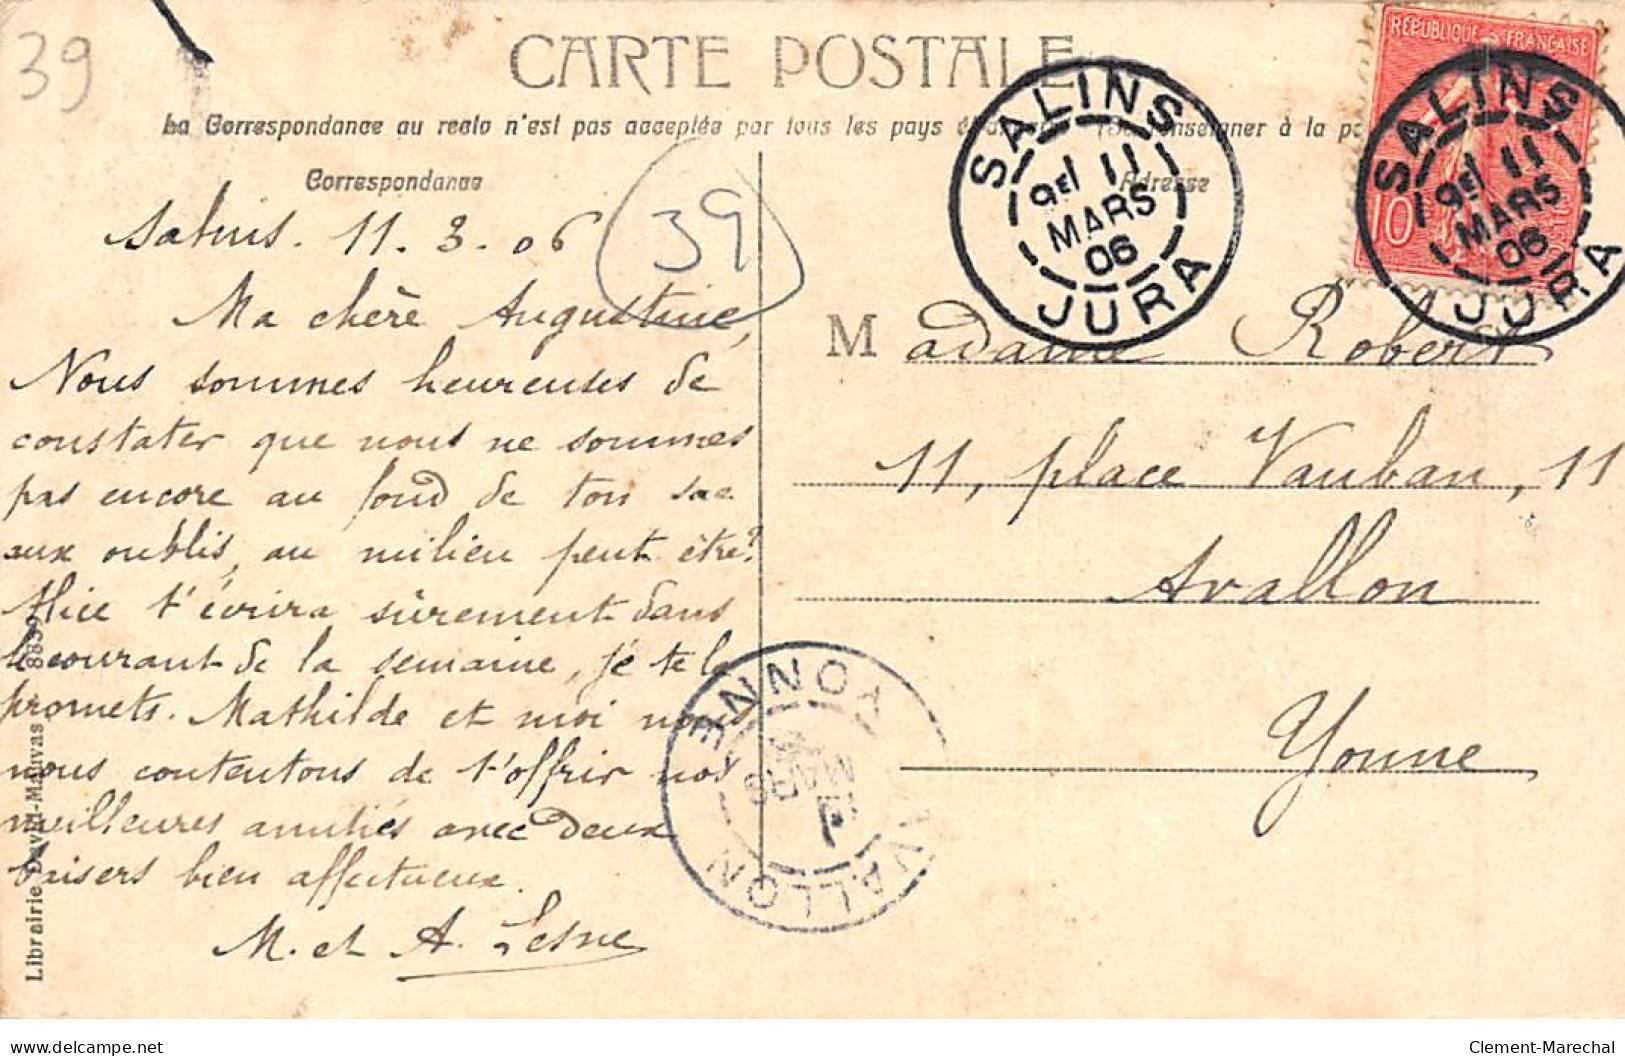 39
CARTE POSTALE
La Correspondance au recto n'est pas acceptée par tous les pays
à la
Correspondance
Adresse
RÉPUBLIQUE FRANÇAISE
10
SALINS
9E 11
MARS
06
JURA
SALINS
9E 11
MARS
06
JURA
39
Salins. 11. 3. 06
Ma chère Augustine,
Nous sommes heureuses de
constater que nous ne sommes
pas encore au fond de ton sac
aux oublis, au milieu peut être?
Alice t'écrira sûrement dans
le courant de la semaine, je te le
promets. Mathilde et moi nous
nous contentons de t'offrir nos
meilleures amitiés avec deux
baisers bien affectueux.
M. et A. Lesne
Madame Robert
11, place Vauban, 11
Avallon
Yonne
AVALLON
YONNE
Librairie David-Mauvas 8839
delcampe.net
Clement-Marechal